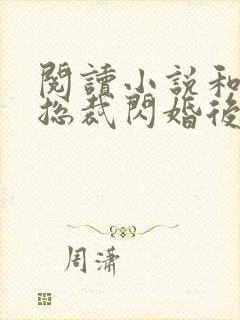 閱讀小説和
總裁閃婚後
周瀟